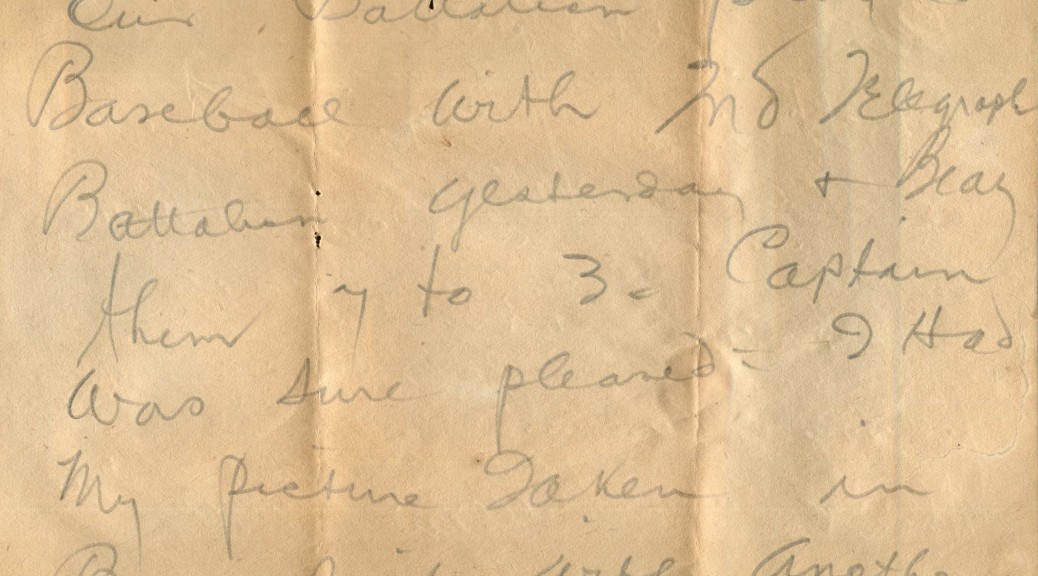 Our Battalion
Baseball with 2nd Telegraph
Battalion yesterday + Beat
them 7 to 3. Captain
was sure pleased - I Had
My Picture Taken in
with Another